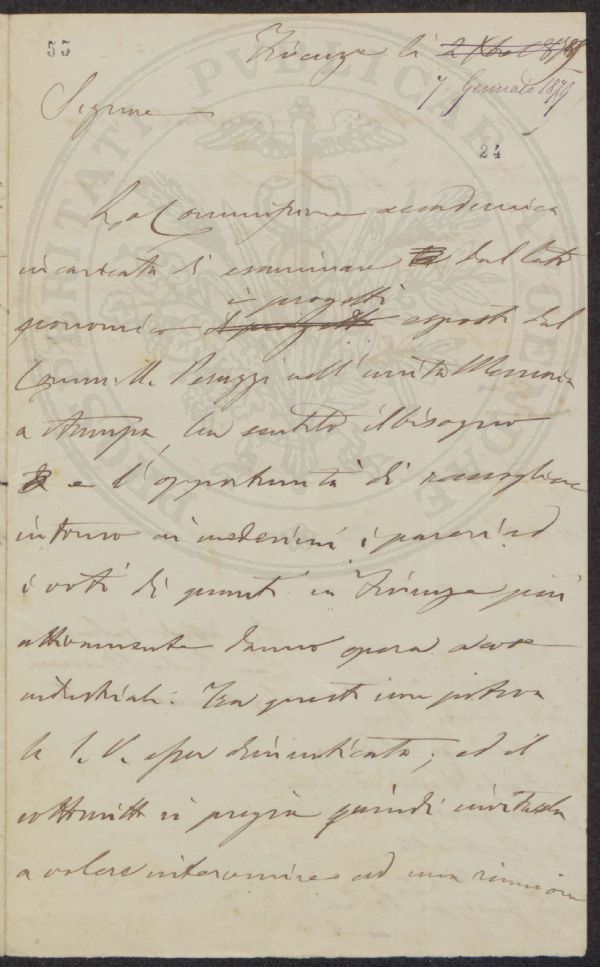 55
Firenze li 2 Xbre 1878
7. Gennaio 1879
Signore
24
La Commissione accademica
incaricata di esaminare dal lato
i progetti
economico i progetti esposti dal
Comm. Peruzzi nell'unita Memoria
a stampa, ha sentito il bisogno
e l'opportunità di raccogliere
intorno ai medesimi i pareri ed
i voti di quanti in Firenze più
attivamente danno opera a cose
industriali. Tra questi non poteva
la S. V. esser dimenticata; ed il
sottoscritto si pregia quindi invitarla
a volere intervenire ad una riunione
PROSPERITATI PUBLICAE AUGENDAE